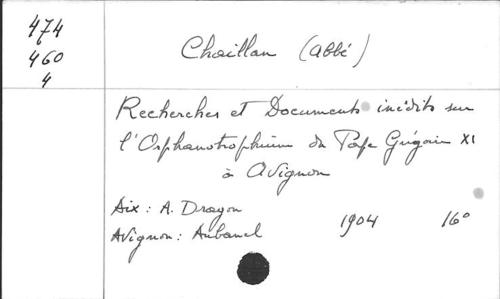 474
460
4
Chaillan (abbé)
Recherches et Documents inédits sur
l'Orphanotrophium du Pape Grégoire XI
à Avignon
Aix : A. Dragon
Avignon : Aubanel 1904 16°